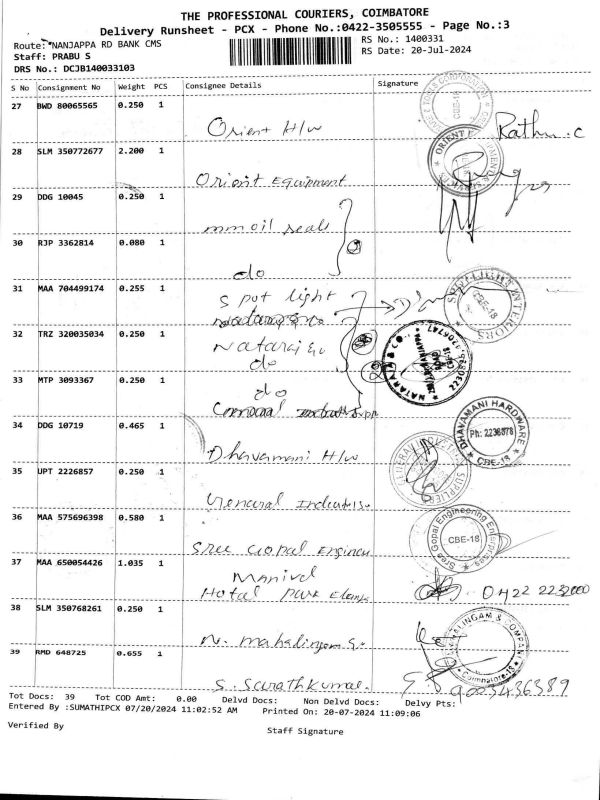 THE PROFESSIONAL COURIERS, COIMBATORE
Delivery Runsheet - PCX - Phone No.:0422-3505555 - Page No.:3
Route: NANJAPPA RD BANK CMS
RS No.: 1400331
Staff: PRABU S
RS Date: 20-Jul-2024
DRS No.: DCJB140033103
S No Consignment No Weight PCS Consignee Details Signature
27 BWD 80065565 0.250 1
Orient H/w
Rathi . C
28 SLM 350772677 2.200 1
ORIENT E
Orient Equipment
29 DDG 10045 0.250 1
mm oil seals
30 RJP 3362814 0.080 1
do
31 MAA 704499174 0.255 1
Spot light
INTERIORS
CBE-18
32 TRZ 320035034 0.250 1
Nataraj & co
do
NATARAJ & CO.
33 MTP 3093367 0.250 1
do
34 DDG 10719 0.465 1
DHAVAMANI HARDWARE
Ph: 2236878
CBE-18
Dhavamani H/w
35 UPT 2226857 0.250 1
36 MAA 575696398 0.580 1
Sree Gopal Engineering Enterprises
CBE-18
Sree Gopal Engineer
37 MAA 650054426 1.035 1
Hotal Park
0422 2232000
38 SLM 350768261 0.250 1
MAHALINGAM & COMPANY
Coimbatore-18
39 RMD 648725 0.655 1
S. Sarathkumar.
9003436389
Tot Docs: 39 Tot COD Amt: 0.00 Delvd Docs: Non Delvd Docs: Delvy Pts:
Entered By :SUMATHIPCX 07/20/2024 11:02:52 AM Printed On: 20-07-2024 11:09:06
Verified By
Staff Signature